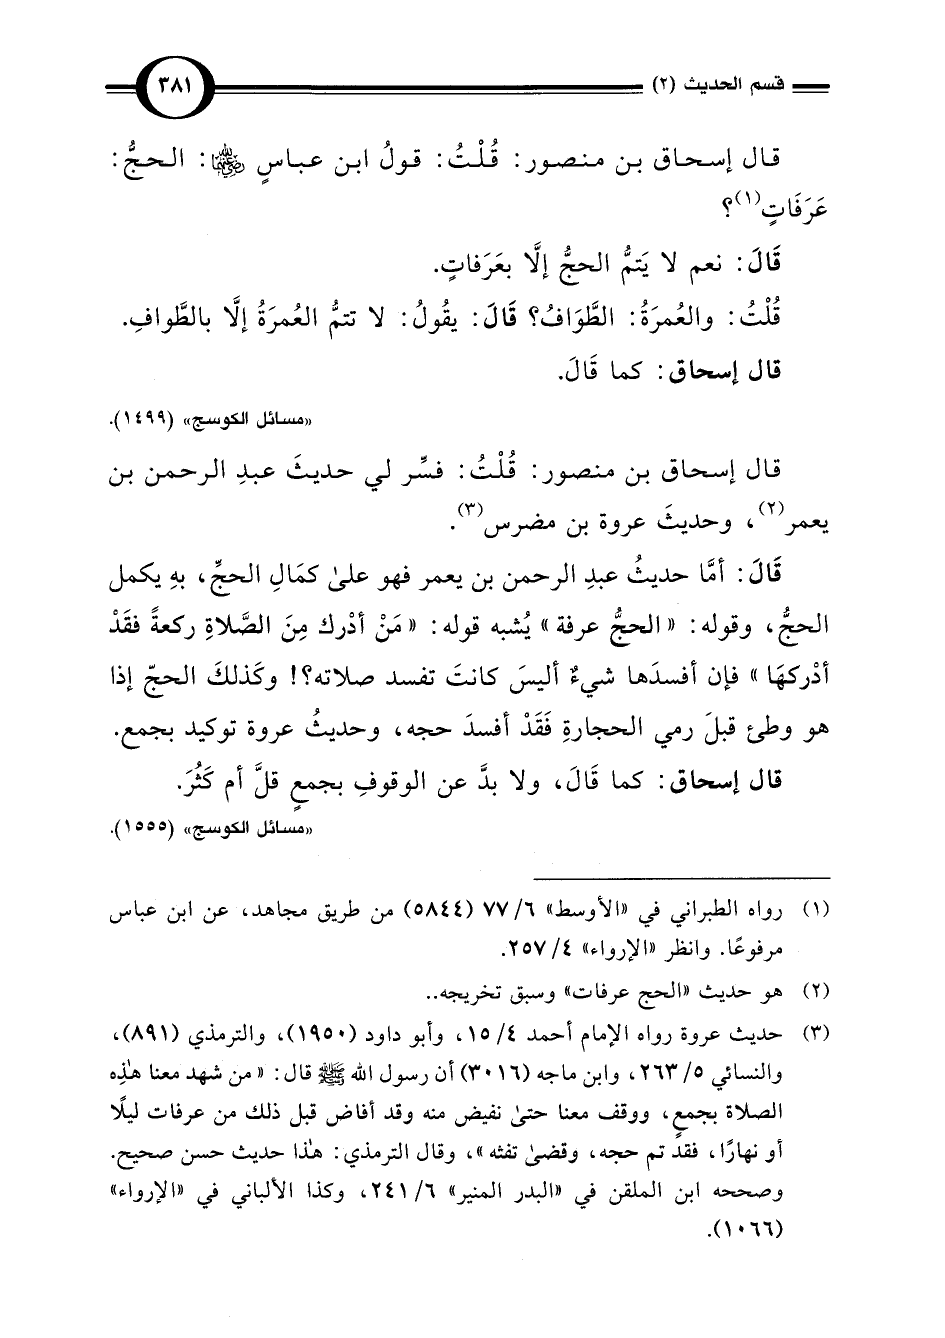 قسم الحديث (٢) ٣٨١
قال إسحاق بن منصور: قُلْتُ: قولُ ابن عباسٍ رضي الله عنهما: الحجُّ:
عَرَفَاتٍ(١)؟
قَالَ: نعم لا يَتمُّ الحجُّ إلَّا بعَرَفاتٍ.
قُلْتُ: والعُمرَةُ: الطَّوَافُ؟ قَالَ: يقُولُ: لا تتمُّ العُمرَةُ إلَّا بالطَّوافِ.
قال إسحاق: كما قَالَ.
«مسائل الكوسج» (١٤٩٩).
قال إسحاق بن منصور: قُلْتُ: فسِّر لي حديثَ عبدِ الرحمن بن
يعمر(٢)، وحديثَ عروة بن مضرس(٣).
قَالَ: أمَّا حديثُ عبدِ الرحمن بن يعمر فهو علىٰ كمَالِ الحجِّ، بهِ يكمل
الحجُّ، وقوله: «الحجُّ عرفة» يُشبه قوله: «مَنْ أدْرك مِنَ الصَّلاةِ ركعةً فقَدْ
أدْركهَا» فإن أفسدَها شيءٌ أليسَ كانتَ تفسد صلاته؟! وكَذلكَ الحجّ إذا
هو وطئ قبلَ رمي الحجارةِ فَقَدْ أفسدَ حجه، وحديثُ عروة توكيد بجمع.
قال إسحاق: كما قَالَ، ولا بدَّ عن الوقوفِ بجمعٍ قلَّ أم كَثُرَ.
«مسائل الكوسج» (١٥٥٥).
(١) رواه الطبراني في «الأوسط» ٦/ ٧٧ (٥٨٤٤) من طريق مجاهد، عن ابن عباس
مرفوعًا. وانظر «الإرواء» ٤/ ٢٥٧.
(٢) هو حديث «الحج عرفات» وسبق تخريجه..
(٣) حديث عروة رواه الإمام أحمد ٤/ ١٥، وأبو داود (١٩٥٠)، والترمذي (٨٩١)،
والنسائي ٥/ ٢٦٣، وابن ماجه (٣٠١٦) أن رسول الله ﷺ قال: «من شهد معنا هٰذِه
الصلاة بجمعٍ، ووقف معنا حتىٰ نفيض منه وقد أفاض قبل ذلك من عرفات ليلًا
أو نهارًا، فقد تم حجه، وقضىٰ تفثه»، وقال الترمذي: هٰذا حديث حسن صحيح.
وصححه ابن الملقن في «البدر المنير» ٦/ ٢٤١، وكذا الألباني في «الإرواء»
(١٠٦٦).